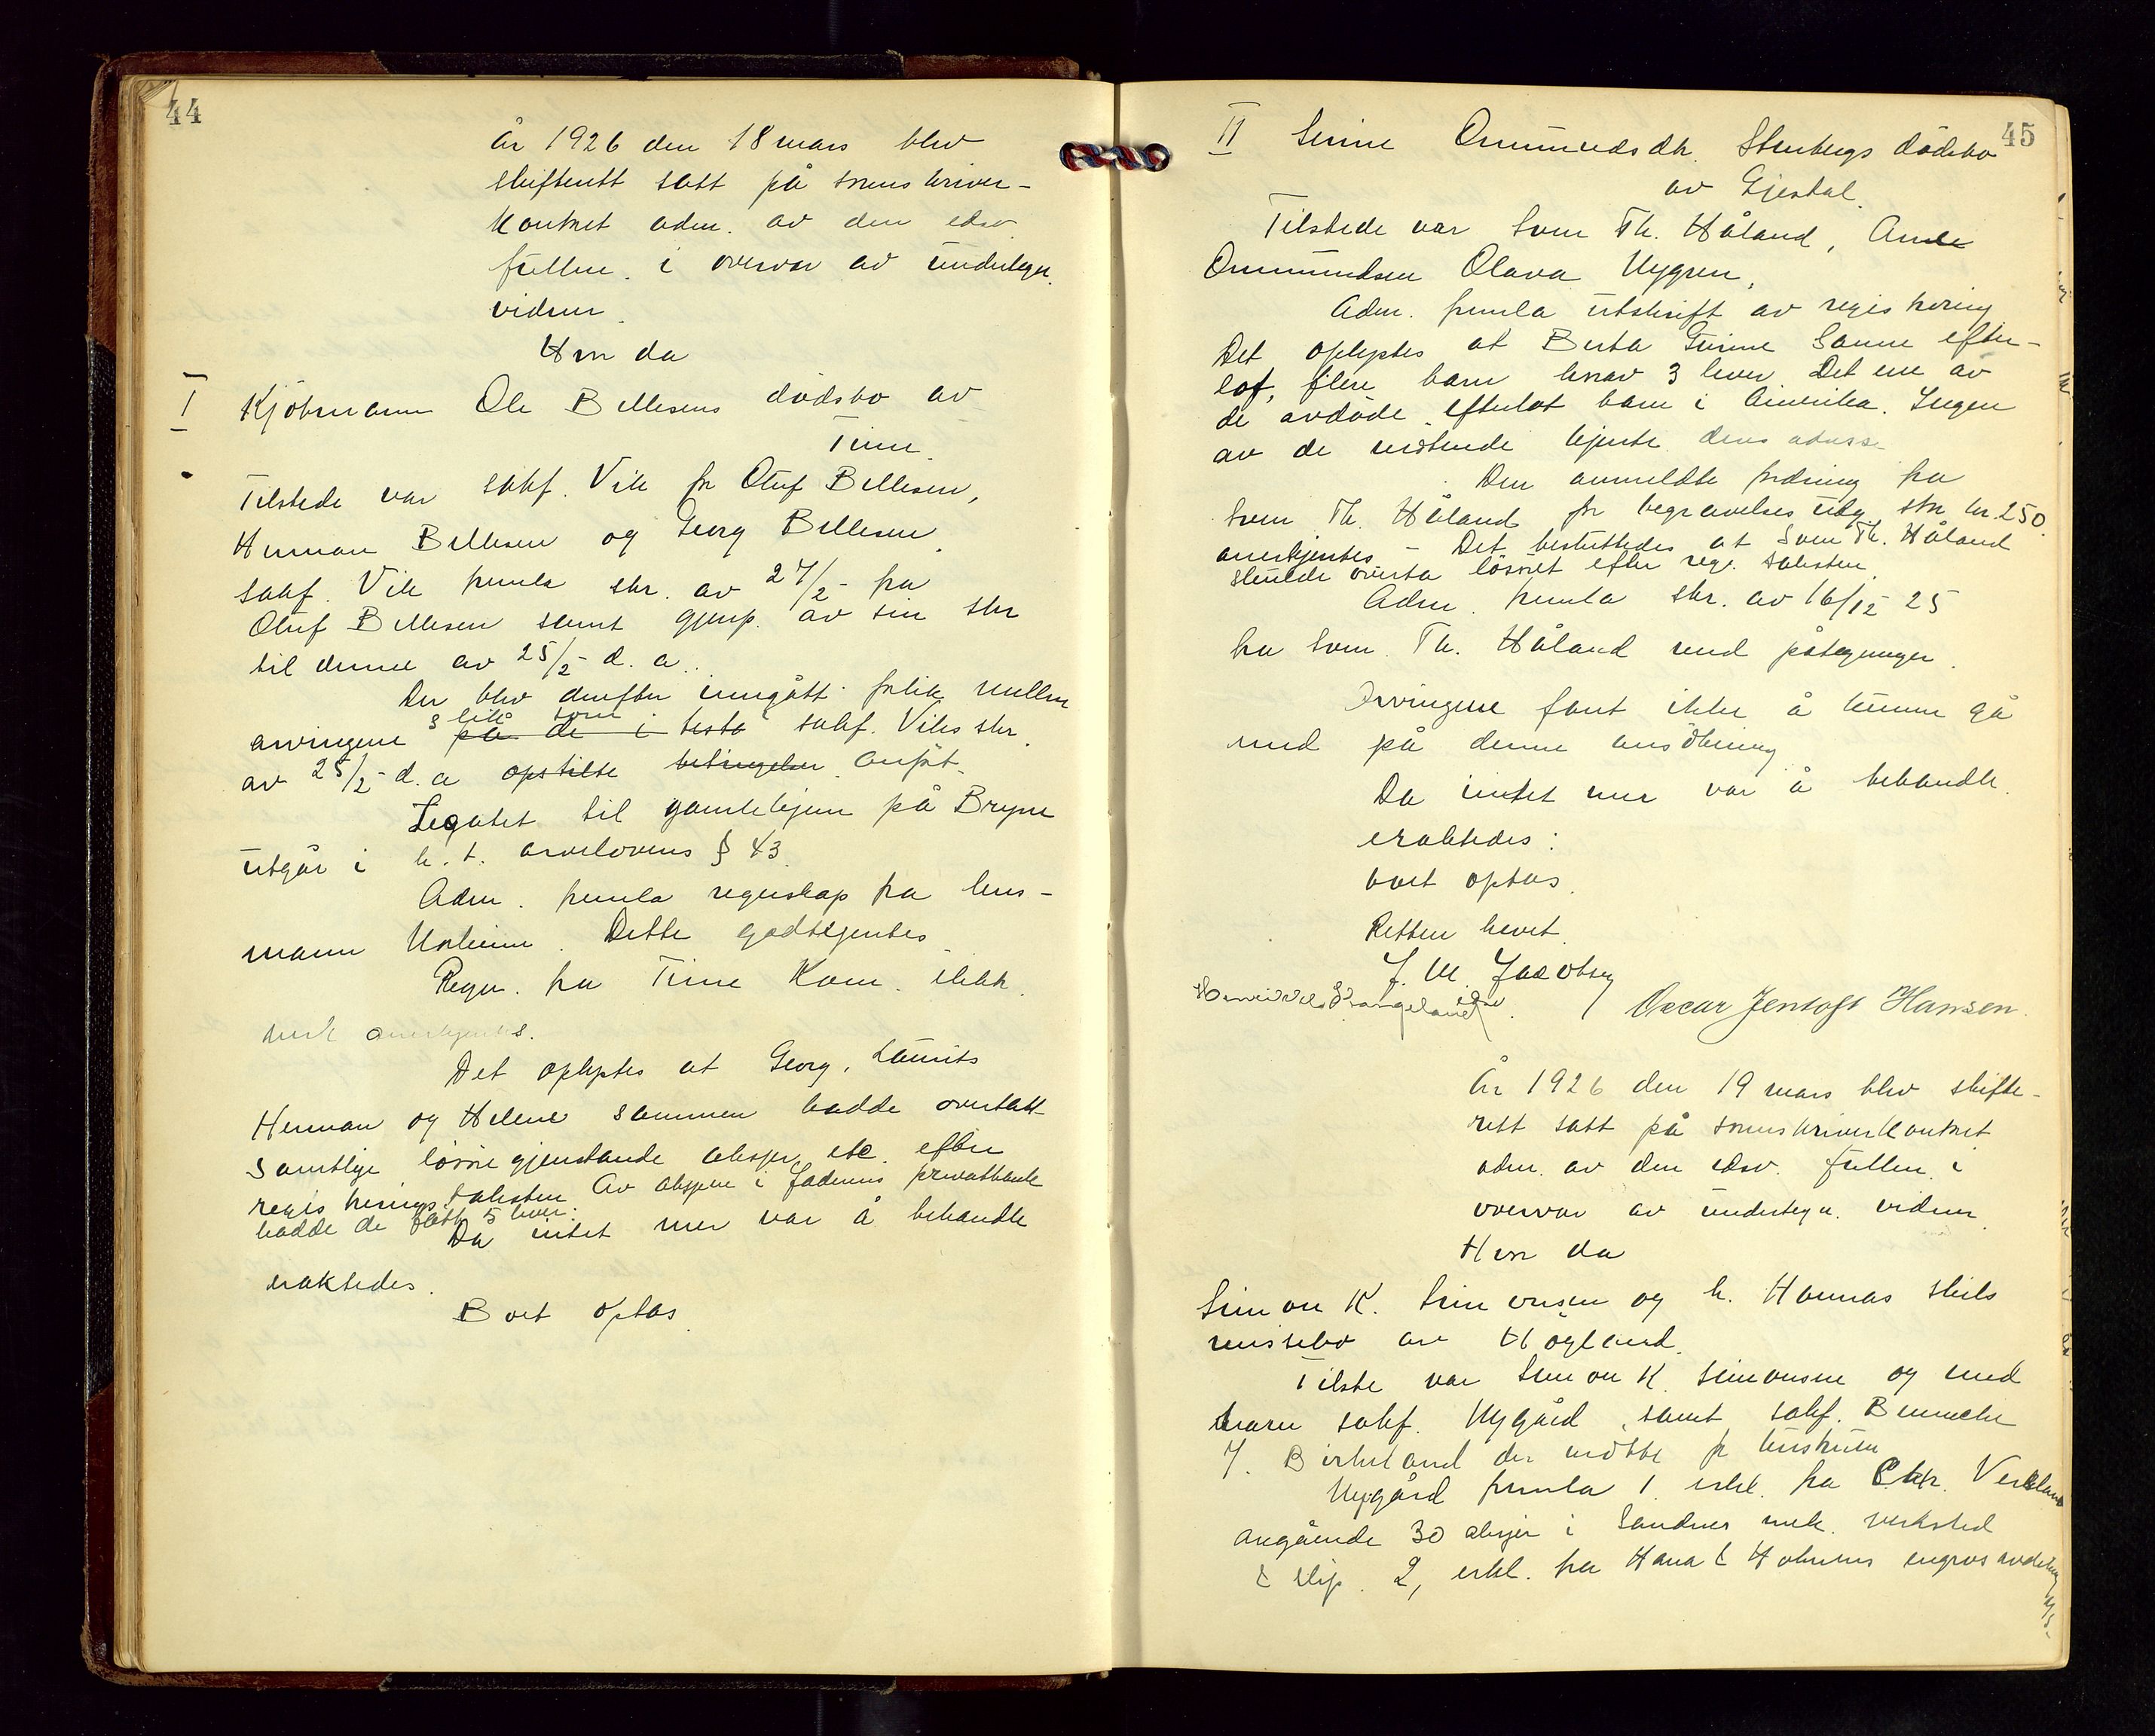 44
År 1926 den 18 mars blev
skifterett satt på sorenskriver-
kontoret adm. av den edsv.
fullm. i overvær av undertegn.
vidner.
Hvor da
I Kjöbmann Ole Bellesens dödsbo av
Time.
Tilstede var sakf. Vik for Oluf Bellesen,
Herman Bellesen og Georg Bellesen.
Sakf. Vik fremla skr. av 27/2- fra
Oluf Bellesen samt gjenp. av sin skr
til denne av 25/2- d. a..
Der blev derefter inngått forlik mellem
slik som
arvingene på de i testa sakf. Viks skr.
av 25/2- d. a opstilte betingelser anfört.
Legatet til gamlehjem på Bryne
utgår i h. t. arvelovens § 43.
Adm. fremla regnskap fra lens-
mann Norheim. Dette godkjentes.
Regn. fra Time Kom. elektr.
verk anerkjentes.
Det oplystes at Georg, Laurits
Herman og Helene sammen hadde overtatt
samtlige lösöregjenstande aksjer etc. efter
registreringstaksten. Av aksjene i Jæderens privatbank
hadde de fått 5 hver.
Da intet mer var å behandle
eraktedes.
Boet optas.
45
II Serine Ommundsdtr. Stenbergs dödsbo
av Gjesdal.
Tilstede var Sven Th. Håland, Arne
Ommundsen Olava Nygren,
Adm. fremla utskrift av registrering
Det oplystes at Berta Serine Sanne efter-
lot, flere barn hvorav 3 lever. Det ene av
de avdöde efterlot barn i Amerika. Ingen
av de mötende kjente dens adresse
Den anmeldte fordring fra
Sven Th. Håland for begravelses utg. stor kr. 250.
anerkjentes - Det besluttedes at Sven Th. Håland
skulde overta lösöret efter reg. taksten.
Adm. fremla skr. av 16/12 25
fra Sven Th. Håland med påtegninger.
Arvingene fant ikke å kunne gå
med på denne ansökning
Da intet mer var å behandle.
eraktedes:
boet optas.
Retten hevet.
J. M. Jacobsen
edsv.
Oscar Jentoft Hansen.
År 1926 den 19 mars blev skifte-
rett satt på sorenskriverkontoret
adm. av den edsv. fullm. i
overvær av undertegn. vidner.
Hvor da
Simon K. Simonsen og h. Hannas skils
missebo av Högland.
Tilste var Simon K. Simonsen og med
ham sakf. Nygård, samt sakf. Benneche
f. Birkeland der mötte for hustruen
Nygård fremla 1. erkl. fra Chr. Verkland
angående 30 aksjer i Sandnes mek. verksted
& slip. 2, erkl. fra Hana & Holmens engros avdeling
A/S.